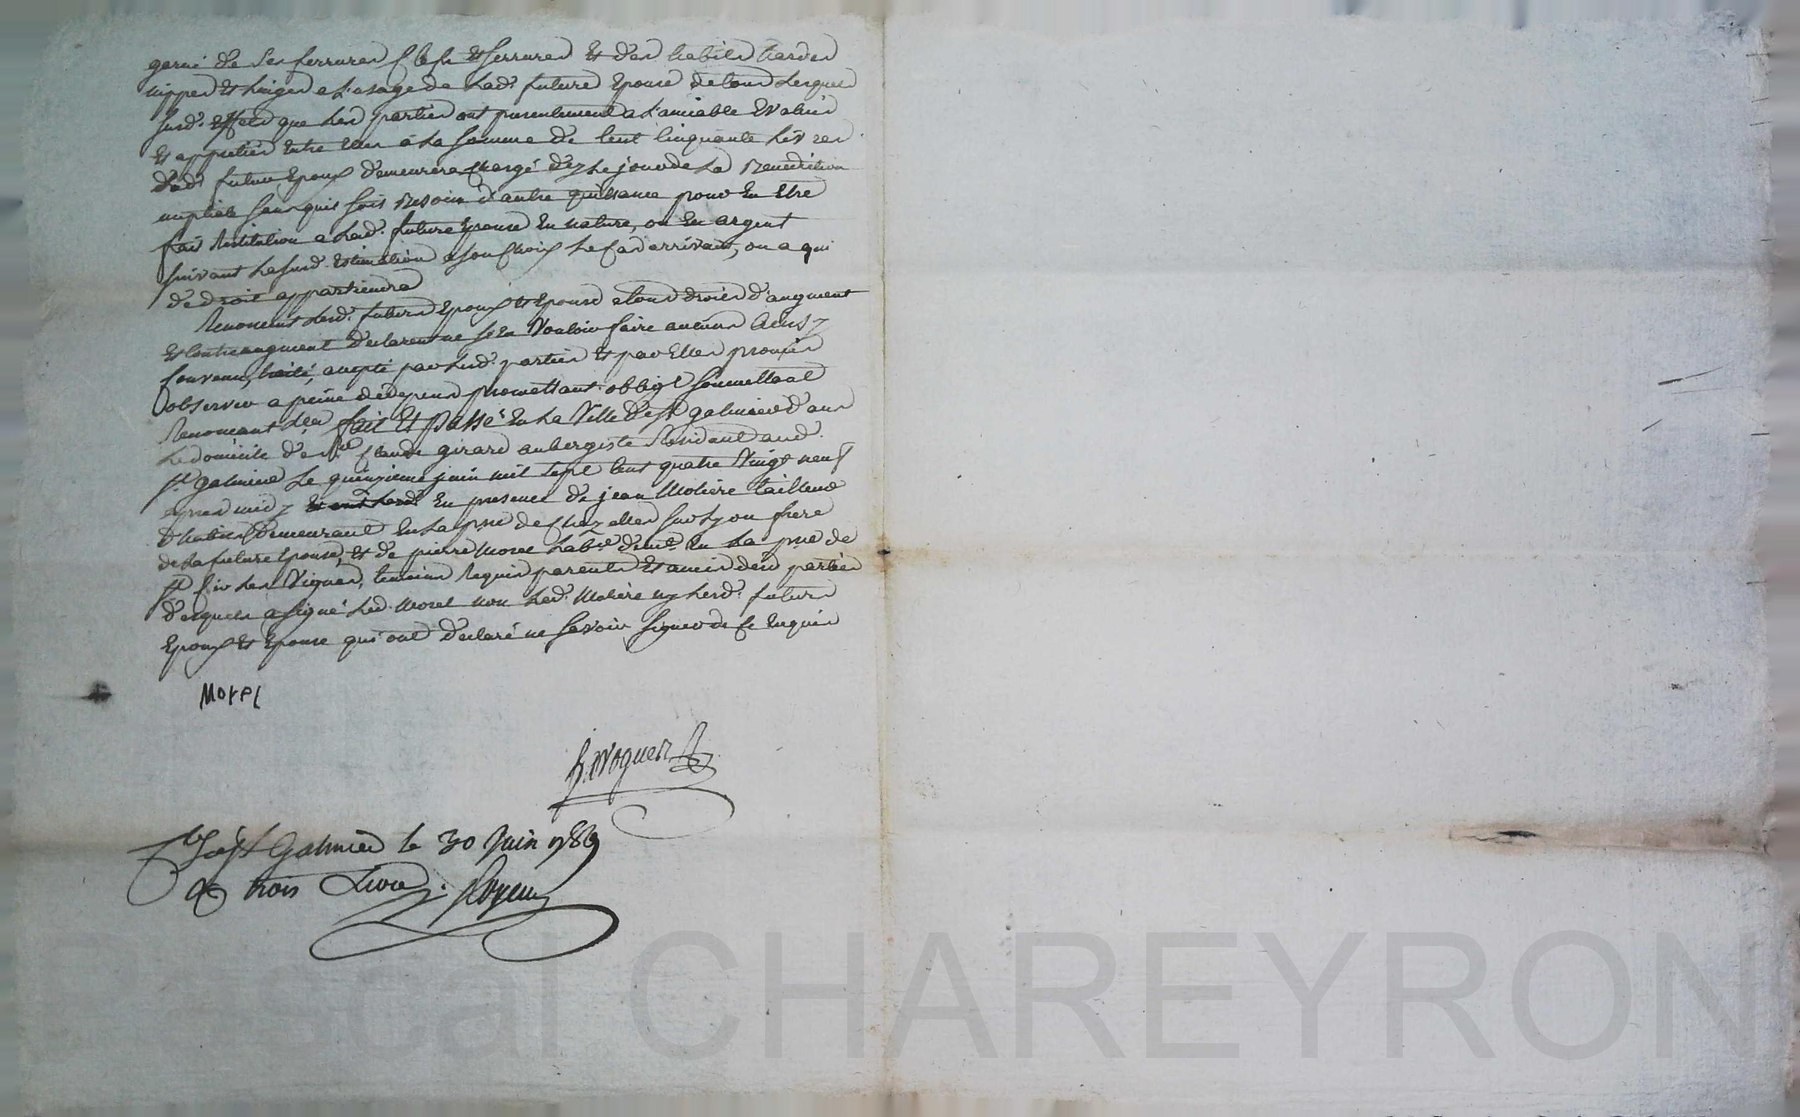 garni de ses ferrures clefs et serrures et des habits hardes
nippes et linges a l'usage de lad. future Epouse de tous lesquels
susd. effets que les parties ont presentement a l'amiable Evalués
et appretiés entre elles a la somme de cent cinquante livres
led. futur Epoux demeurera chargé dez le jour de la Benediction
nuptiale sans quil soit Besoin d'autre quittance pour en Etre
fait Restitution a lad. future Epouse en nature, ou en argent
suivant la susd. Estimation a son choix le cas arrivant, ou a qui
de droit appartiendra
Renoncent lesd. futurs Epoux et Epouse a tous droits d'augment
et contreaugment declarent ne s'en vouloir faire aucuns ainsy
convenu, traité, accepté par lesd. parties et par elles promis
observer a peine de depens promettant oblige soumettant
Renonceant fait et passé en la Ville de st galmier dans
le domicile de sr claude girard aubergiste Residant aud.
st galmier le quinzieme juin mil sept cent quatre vingt neuf
apres midy en presence de jean Moliere tailleur
d'habits demeurant en la psse de chazelles sur lyon frere
de la future Epouse, et de pierre Morel labr demt en la psse de
st Cir les Vignes, temoins Requis parents et amis desd. parties
desquels a signé led. Morel non led. Moliere ny lesd. futurs
Epoux et Epouse qui ont declaré ne savoir signer de ce enquis
Morel
ce a st Galmier le 30 Juin 1789
Rx trois Livres.
Pascal CHAREYRON